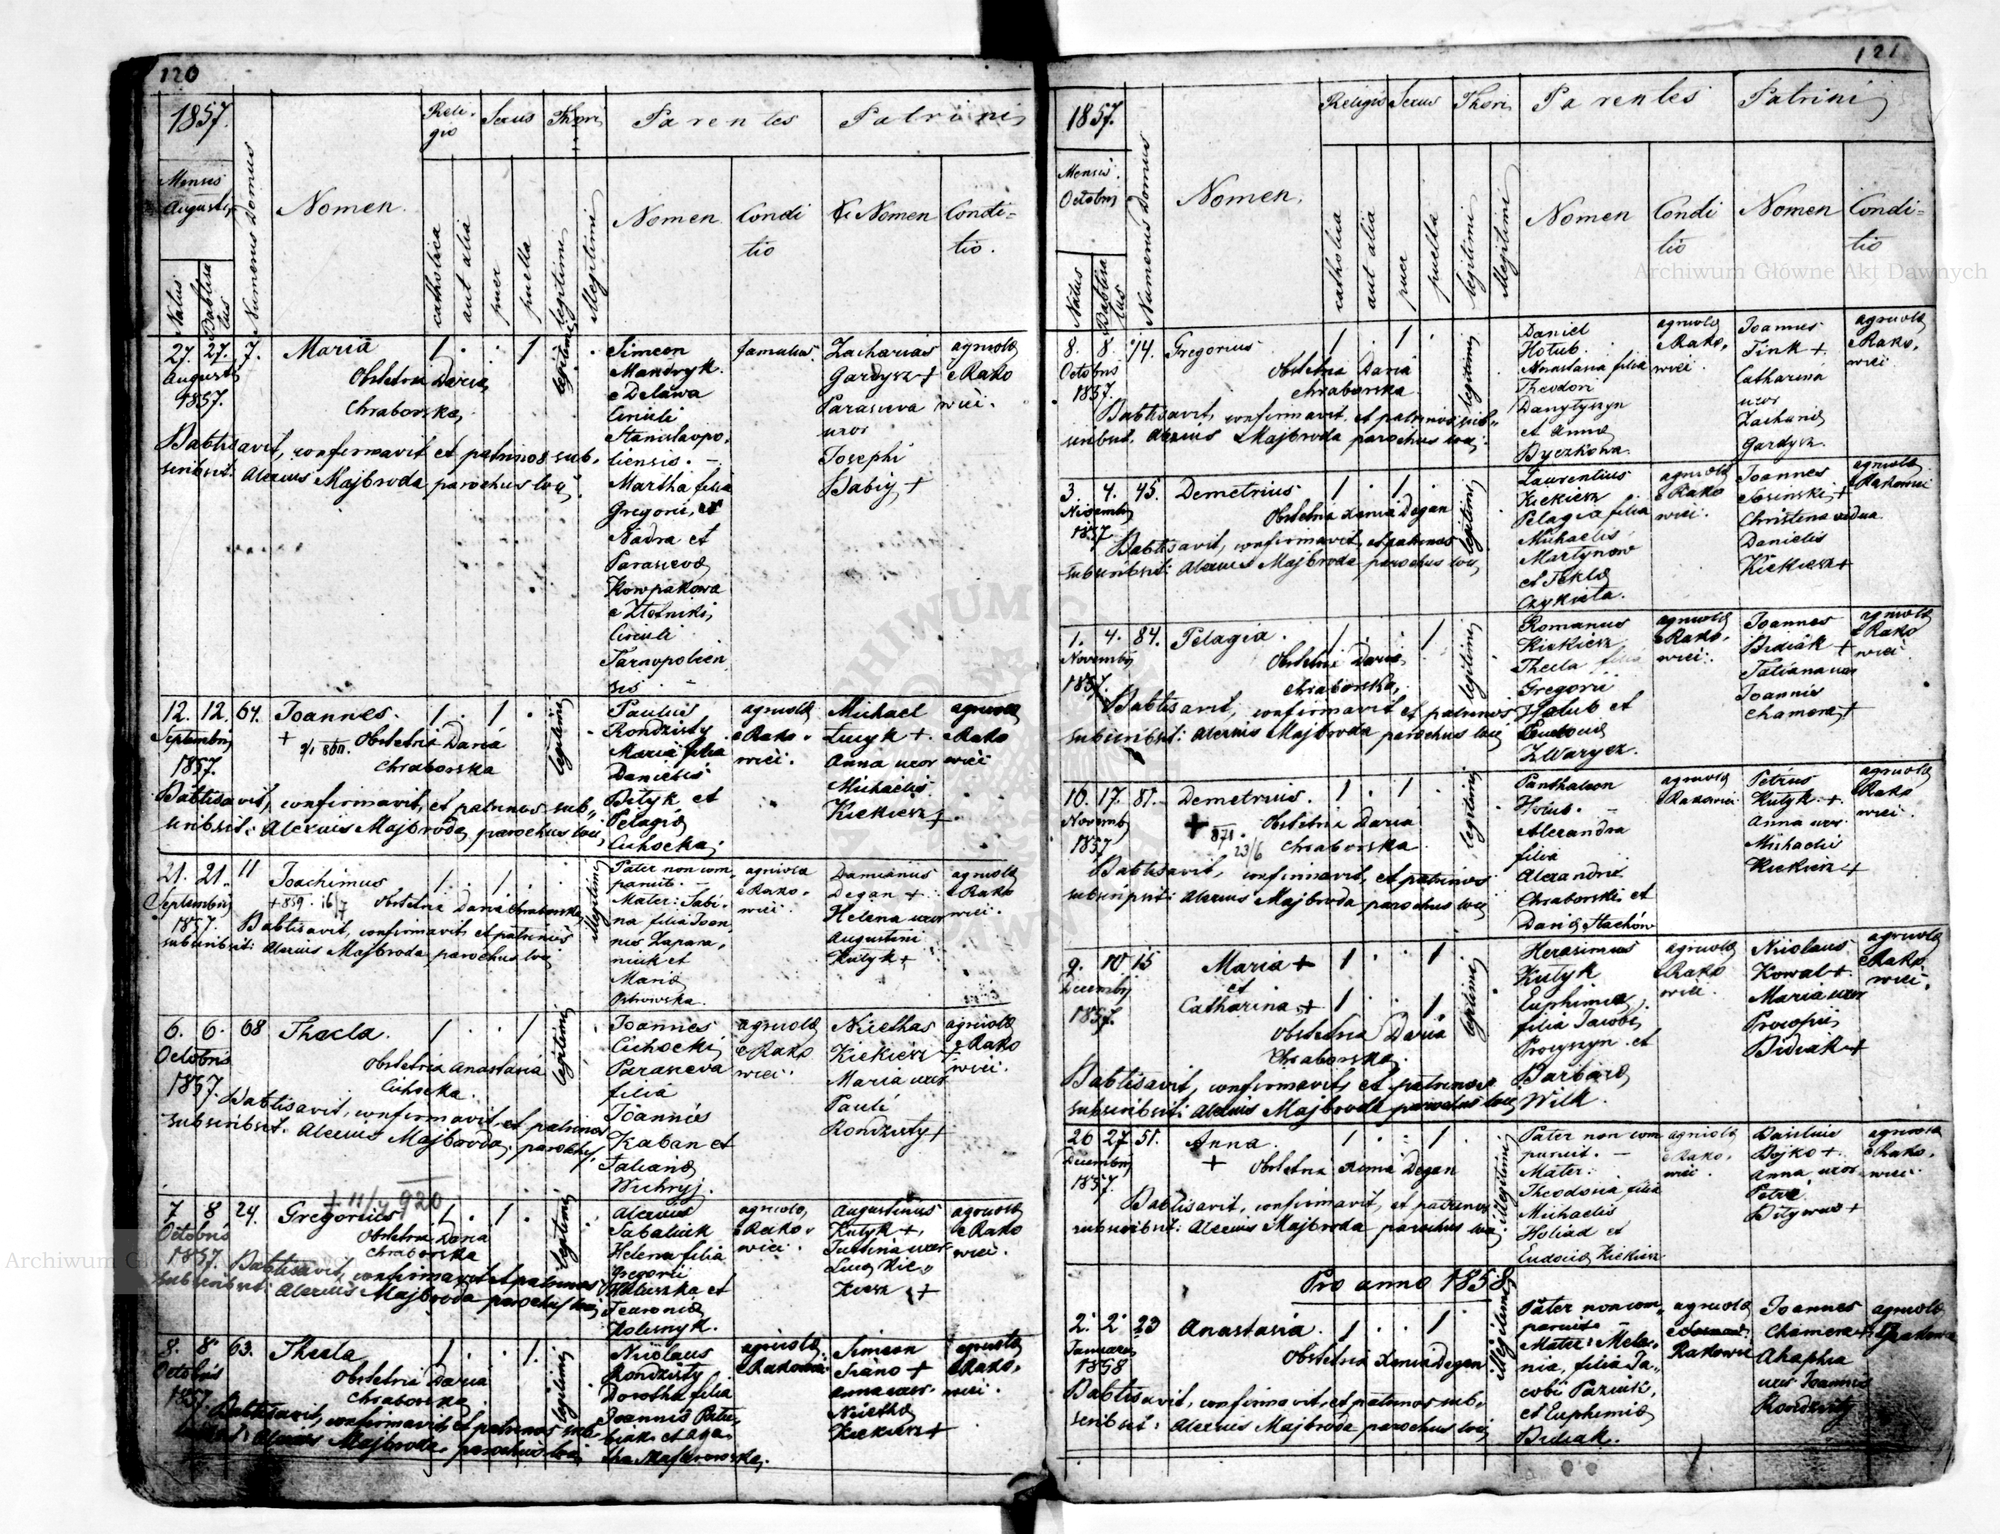 120
1857.
Mensis
Augusti
Natus
Babtisa
tus
Numerus Domus
Nomen.
Reli-
gio
catholica
aut alia
Sexus
puer
puella
Thori
legitimi
Illegitimi
Parentes
Nomen
Condi
tio
Patrini
Nomen
Condi-
tio.
27. 27. 7. Maria 1 . . 1 legitimi
Augusti
1857.
Obstetrix Daria
Chraborska
Babtisavit, confirmavit et patrinos sub-
scribsit: Alexius Majbroda parochus loci
Simeon
Mandryk
e Delawa
Circuli
Stanislavpo-
liensis. —
Martha filia
Gregorii et
Nadra et
Parascevæ
Kowpakowa
e Złotniki,
Circuli
Tarnopolien
sis
famulus.
Zacharias
Gardysz +
Parasceva
uxor
Josephi
Babij +
agricolæ
e Rako
wiec.
12. 12. 64. Joannes. 1 . 1 . legitimi
Septembris
1857.
+
Obstetrix Daria
Chraborska
Babtisavit, confirmavit, et patrinos sub-
scribsit: Alexius Majbroda, parochus loci
Paulus
Kondzisty
Maria filia
Danielis
Bityk et
Pelagiæ
Cichocka
agricolæ
e Rako-
wiec.
Michael
Lucyk +
Anna uxor
Michaelis
Kiekiesz +
agricolæ
e Rako
wiec
21. 21. 11 Joachimus 1 . 1 . illegitimi
Septembris
1857.
+ 859. 16/7
Obstetrix Daria Chraborska
Babtisavit, confirmavit et patrinos
subscribsit: Alexius Majbroda parochus loci
Pater non com-
paruit. —
Mater: Sabi-
na filia Joan-
nis Zapara-
niuk et
Mariæ
Petrowska.
agricolæ
e Rako-
wiec.
Damianus
Degan +
Helena uxor
Augustini
Kutyk +
agricolæ
e Rako
wiec.
6. 6. 68 Thecla. 1 . . 1 legitimi
Octobris
1857.
Obstetrix Anastasia
Cichocka.
Babtisavit, confirmavit, et patrinos
subscribsit. Alexius Majbroda, parochus
Joannes
Cichocki
Parasceva
filia
Joannis
Kaban et
Tatianæ
Wichryj.
agricolæ
e Rako
wiec.
Nicethas
Kiekiesz +
Maria uxor
Pauli
Kondzisty +
agricolæ
e Rako
wiec.
+ 11/4 920
7 8 24. Gregorius 1 . 1 . legitimi
Octobris
1857.
Obstetrix Daria
Chraborska
Babtisavit, confirmavit et patrinos
subscribsit: Alexius Majbroda parochus loci
Alexius
Sabaliuk
Helena filia
Gregorii
Haluszka et
Fevroniæ
Kolesnyk.
agricolæ
e Rako-
wiec.
Augustinus
Kutyk +
Justina uxor
agricolæ
e Rako
wiec.
8. 8. 63. Thecla 1 . . 1. legitimi
Octobris
1857.
Obstetrix Daria
Chraborska
Babtisavit, confirmavit et patrinos sub-
scribsit: Alexius Majbroda parochus loci
Nicolaus
Kondzisty
Dorothea filia
Joannis
agricolæ
e Rakowiec
Simeon
Siano +
Anna uxor
Nicethæ
Kiekiesz +
agricolæ
e Rako-
wiec.
121
1857.
Mensis
Octobris
Natus
Babtisa
tus
Numerus Domus
Nomen.
Religio
catholica
aut alia
Sexus
puer
puella
Thori
legitimi
Illegitimi
Parentes
Nomen
Condi
tio
Patrini
Nomen
Condi-
tio
8. 8 74. Gregorius 1 . 1 . legitimi
Octobris
1857.
Obstetrix Daria
Chraborska
Babtisavit, confirmavit, et patrinos sub-
scribsit. Alexius Majbroda parochus loci.
Daniel
Hołub.
Anastasia filia
Theodori
Danyłyszyn
et Annæ
Dyczkowa.
agricolæ
e Rako-
wiec.
Joannes
Fink +
Catharina
uxor
Zachariæ
Gardysz.
agricolæ
e Rako-
wiec
3. 4. 45. Demetrius. 1 . 1 . legitimi
Novembris
1857
Obstetrix Xenia Degan
Babtisavit, confirmavit, et patrinos
subscribsit: Alexius Majbroda, parochus loci
Laurentius
Kiekiesz
Pelagia filia
Michaelis
Martynow
et Teklæ
Czykieta.
agricolæ
e Rako
wiec.
Joannes
Sosinski +
Christina vidua
Danielis
Kiekiesz +
agricolæ
e Rakowiec
1. 4. 84. Pelagia. 1 . . 1 legitimi
Novembris
1857.
Obstetrix Daria
Chraborska,
Babtisavit, confirmavit et patrinos
subscribsit: Alexius Majbroda, parochus loci
Romanus
Kiekiesz
Thecla filia
Gregorii
Hołub et
Eudociæ
Zwarycz.
agricolæ
e Rako-
wiec.
Joannes
Bidiak +
Tatiana uxor
Joannis
Chamera +
agricolæ
e Rako
wiec
16. 17. 81. Demetrius. 1 . 1 . legitimi
Novembris
1857
+ 871. 23/6
Obstetrix Daria
Chraborska
Babtisavit, confirmavit, et patrinos
subscripsit: Alexius Majbroda parochus loci
Panthaleon
Hołub. —
Alexandra
filia
Alexandri
Chraborski et
Dariæ Stachów
agricolæ
e Rakowiec
Petrus
Kutyk +
Anna uxor
Michaelis
Kiekiesz +
agricolæ
e Rako
wiec.
9. 10 15 Maria + 1 . . 1 legitimi
et
Catharina + 1 . . 1
Decembris
1857.
Obstetrix Daria
Chraborska.
Babtisavit, confirmavit, et patrinos
subscribsit: Alexius Majbroda parochus loci
Herasimus
Kutyk
Euphimia
filia Jacobi
Procyszyn et
Barbaræ
Wilk.
agricolæ
e Rako
wiec.
Nicolaus
Kowal +
Maria uxor
Procopii
Bidiak +
agricolæ
e Rako
wiec.
26 27 51. Anna. 1 . . 1 . illegitimi
Decembris
1857.
+ Obstetrix Xenia Degan
Babtisavit, confirmavit, et patrinos
subscribsit: Alexius Majbroda parochus loci
Pater non com
paruit. —
Mater:
Theodosia filia
Michaelis
Holiad et
Eudociæ Kiekiesz
agricolæ
e Rako-
wiec
Basilius
Bojko +
Anna uxor
Petri
Bitywus +
agricolæ
e Rako-
wiec.
Pro anno 1858
2. 2. 23 Anastasia. 1 . . 1 illegitimi
Januarii
1858
Obstetrix Xenia Degan
Babtisavit, confirmavit, et patrinos sub-
scribsit: Alexius Majbroda, parochus loci
Pater non com-
paruit —
Mater: Mela-
nia, filia Ja-
cobi Paziuk,
et Euphemiæ
Bidiak.
agricolæ
Rakowiec
Joannes
Chamera +
Ahaphia
uxor Joannis
Kondzisty
agricolæ
Archiwum Główne Akt Dawnych